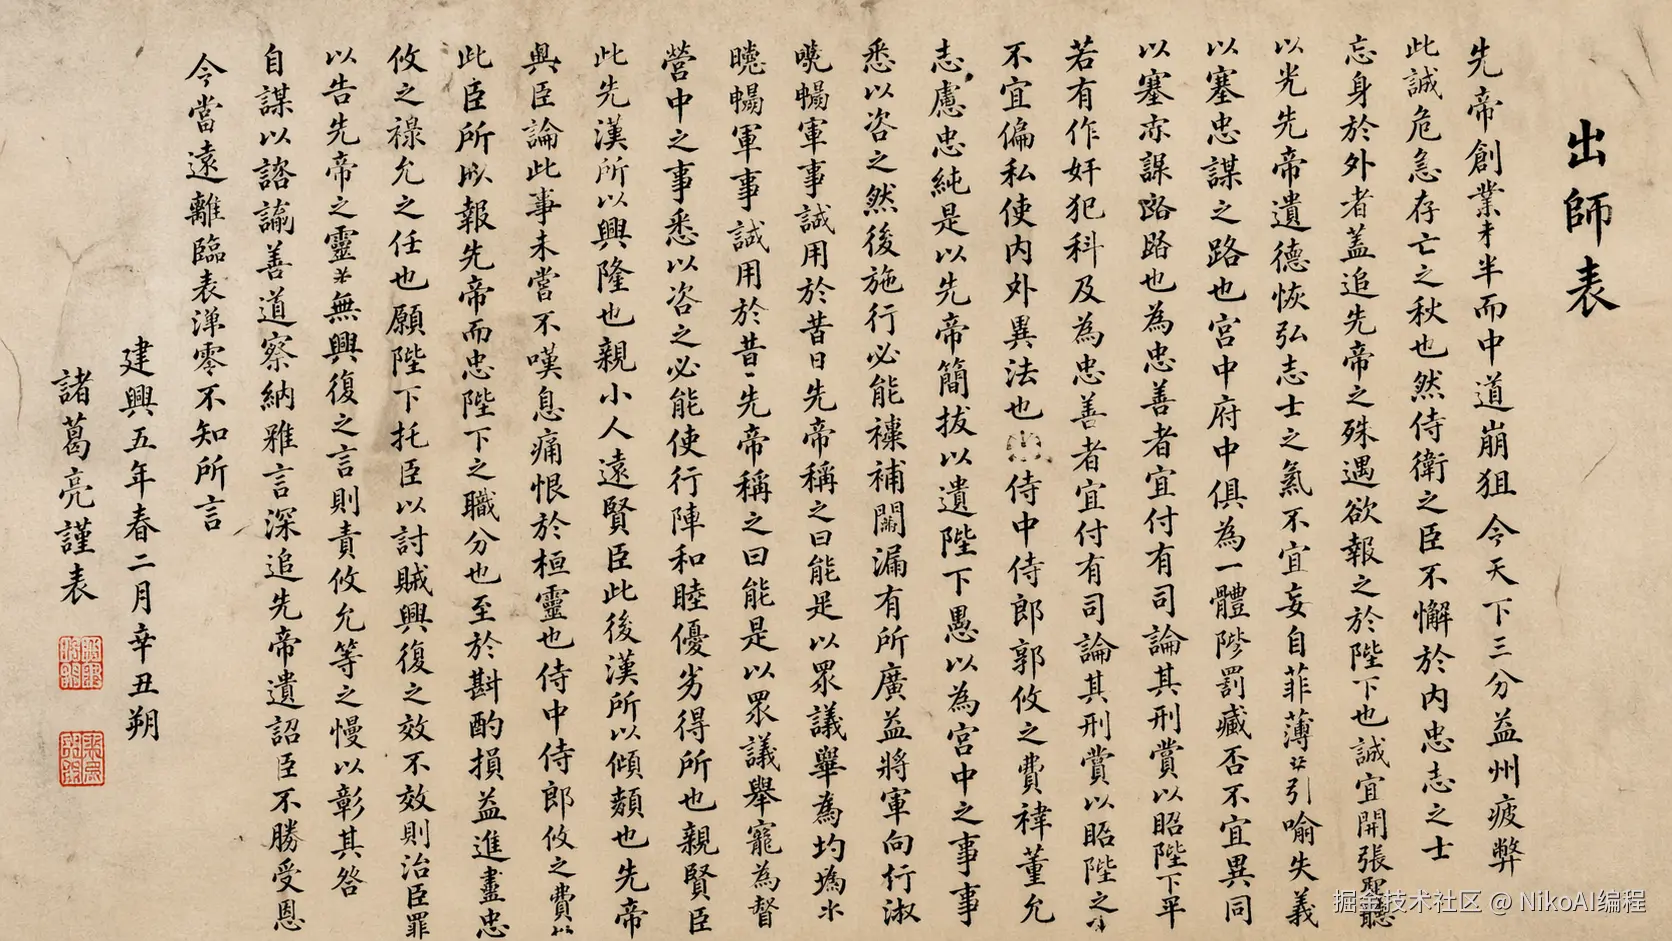 出師表
先帝創業未半而中道崩狙今天下三分益州疲弊
此誠危急存亡之秋也然侍衛之臣不懈於內忠志之士
忘身於外者蓋追先帝之殊遇欲報之於陛下也誠宜開張聖聽
以光先帝遺德恢弘志士之氣不宜妄自菲薄引喻失義
以塞忠謀之路也宮中府中俱為一體陟罰臧否不宜異同
以塞亦課路路也為忠善者宜付有司論其刑賞以昭陛下平
若有作奸犯科及為忠善者宜付有司論其刑賞以昭陛之
不宜偏私使內外異法也侍中侍郎郭攸之費褘董允
志慮忠純是以先帝簡拔以遺陛下愚以為宮中之事事
悉以咨之然後施行必能補闕漏有所廣益將軍向行淑
曉暢軍事誠用於昔日先帝稱之曰能是以眾議舉為
曉暢軍事誠用於昔先帝稱之曰能是以眾議舉寵為督
營中之事悉以咨之必能使行陣和睦優劣得所也親賢臣
此先漢所以興隆也親小人遠賢臣此後漢所以傾頹也先帝
與臣論此事未嘗不嘆息痛恨於桓靈也侍中侍郎攸之費
此臣所以報先帝而忠陛下之職分也至於斟酌損益進盡忠
攸之禄允之任也願陛下托臣以討賊興復之效不效則治臣罪
以告先帝之靈若無興復之言則責攸允等之慢以彰其咎
自謀以諮諭善道察納雅言深追先帝遺詔臣不勝受恩
今當遠離臨表涕零不知所言
建興五年春二月辛丑朔
諸葛亮謹表
掘金技术社区 @ NikoAI编程